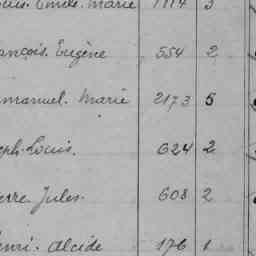 ouis. Emile. Marie 1114 3
ançois. Eugène 554 2
manuel. Marie 2173 5
eph. Louis. 624 2
erre Jules. 608 2
enri. Alcide 176 1